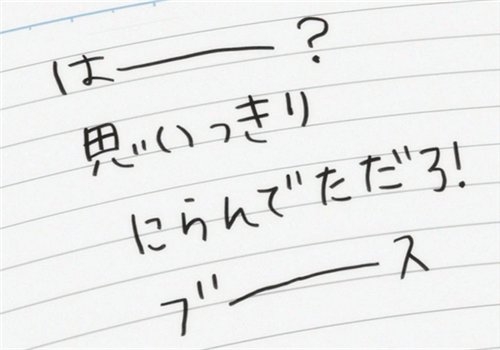 は――?
思いっきり
にらんでただろ!
ブ――ス